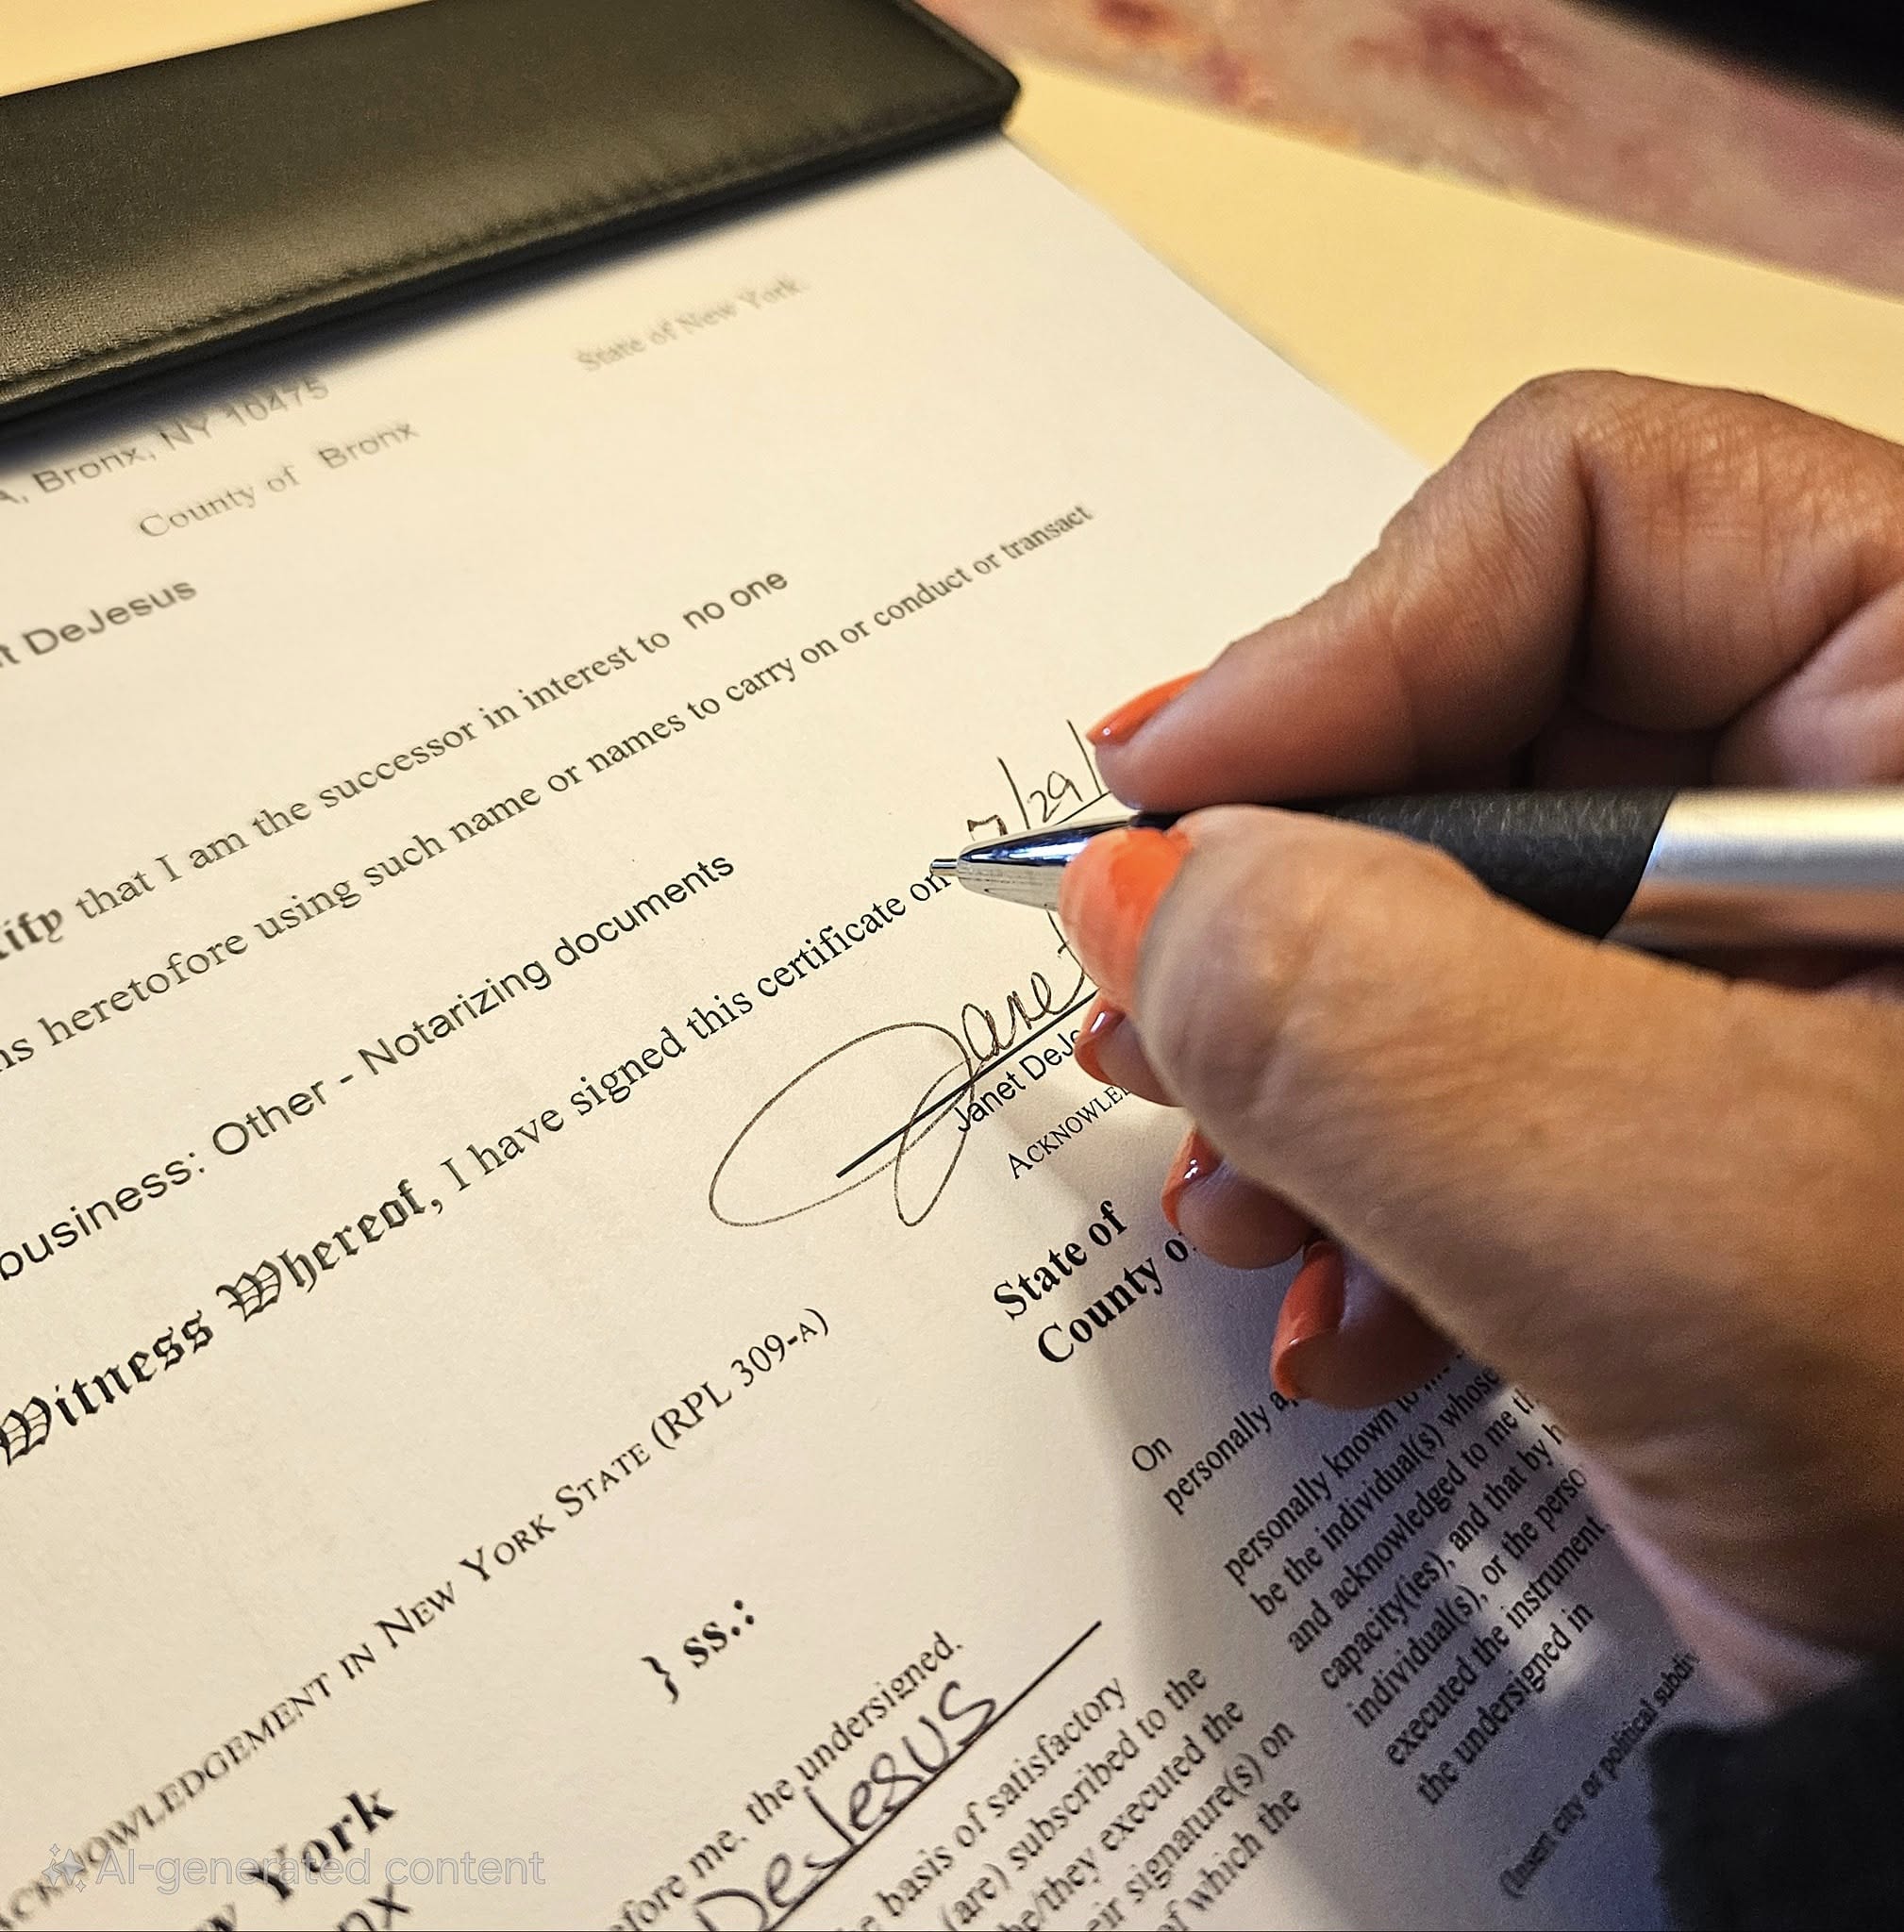 State of New York.
A, Bronx, NY 10475
County of Bronx
t DeJesus
tify that I am the successor in interest to no one
ns heretofore using such name or names to carry on or conduct or transact
business: Other - Notarizing documents
Witness Whereof, I have signed this certificate on 7/29/
Janet
Janet DeJe
ACKNOWLE
ACKNOWLEDGEMENT IN NEW YORK STATE (RPL 309-A)
w York
nx
} ss.:
efore me, the undersigned,
DeJesus
e basis of satisfactory
(are) subscribed to the
he/they executed the
eir signature(s) on
of which the
State of
County of
On
personally a
personally known to m
be the individual(s) whose
and acknowledged to me th
capacity(ies), and that by h
individual(s), or the perso
executed the instrument,
the undersigned in
(Insert city or political subdiv
AI-generated content